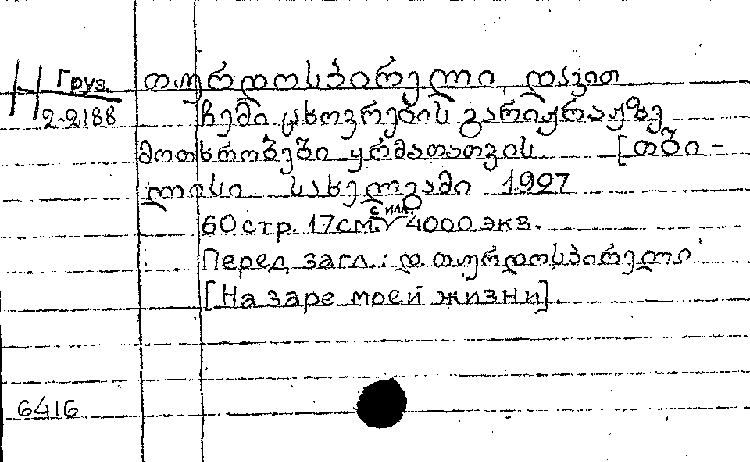 Н Груз.
2-2188
თურდოსპირელი, დავით
ჩემი ცხოვრების გარიჟრაჟზე
მოთხრობები ყრმათათვის [თბი-
ლისი სახელგამი 1927
60 стр. 17 см. с илл. 4000 экз.
Перед загл.: დ. თურდოსპირელი
[На заре моей жизни].
6416